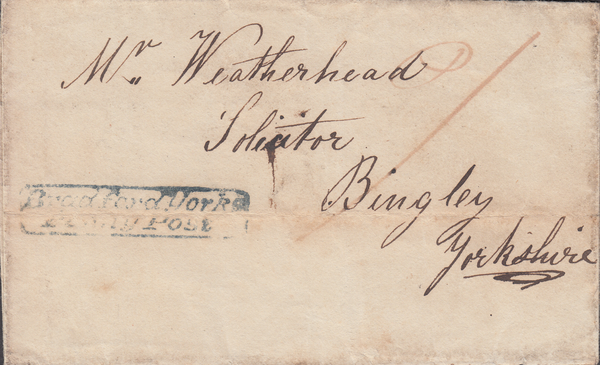 Mr. Weatherhead
Solicitor
Bingley
Yorkshire
Bradford Yorks
Penny Post